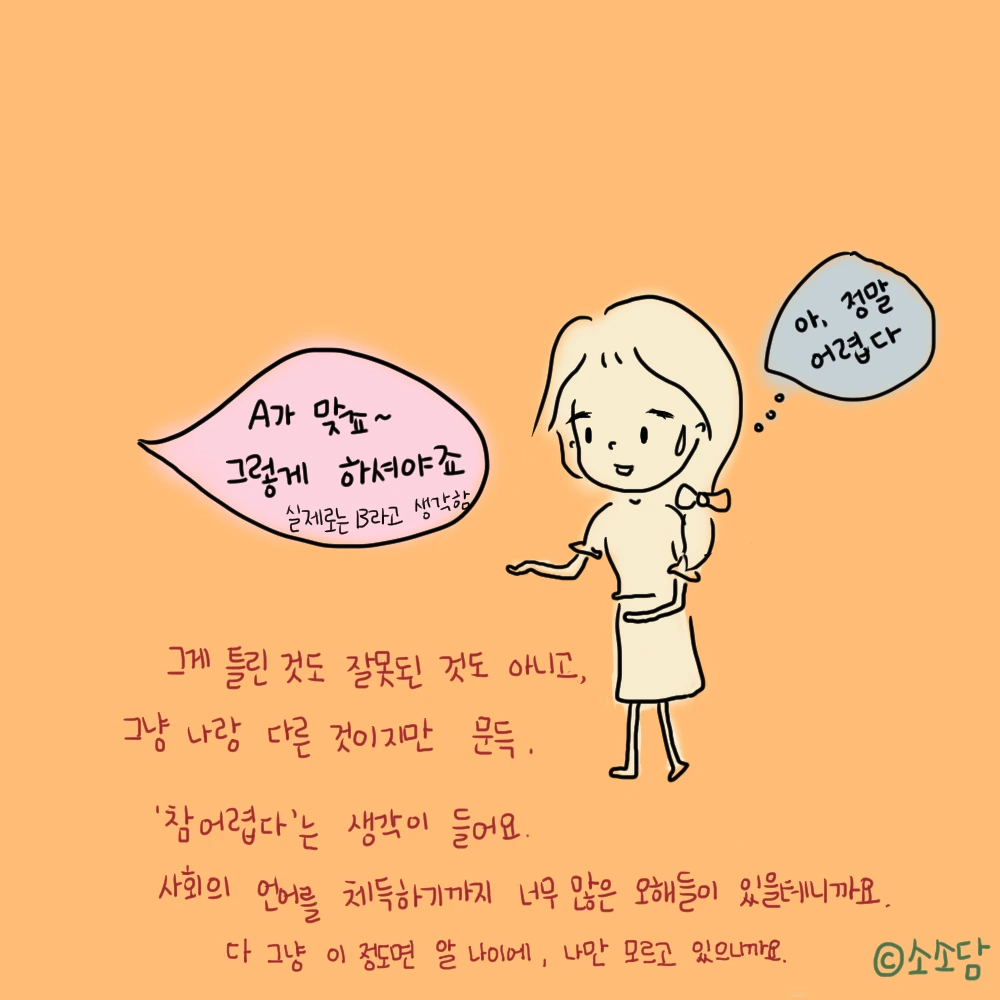 아, 정말
어렵다
A가 맞죠~
그렇게 하셔야죠
실제로는 B라고 생각함
그게 틀린 것도 잘못된 것도 아니고,
그냥 나랑 다른 것이지만 문득.
'참 어렵다'는 생각이 들어요.
사회의 언어를 체득하기까지 너무 많은 오해들이 있을테니까요.
다 그냥 이 정도면 알 나이에, 나만 모르고 있으니까요.
©소소담